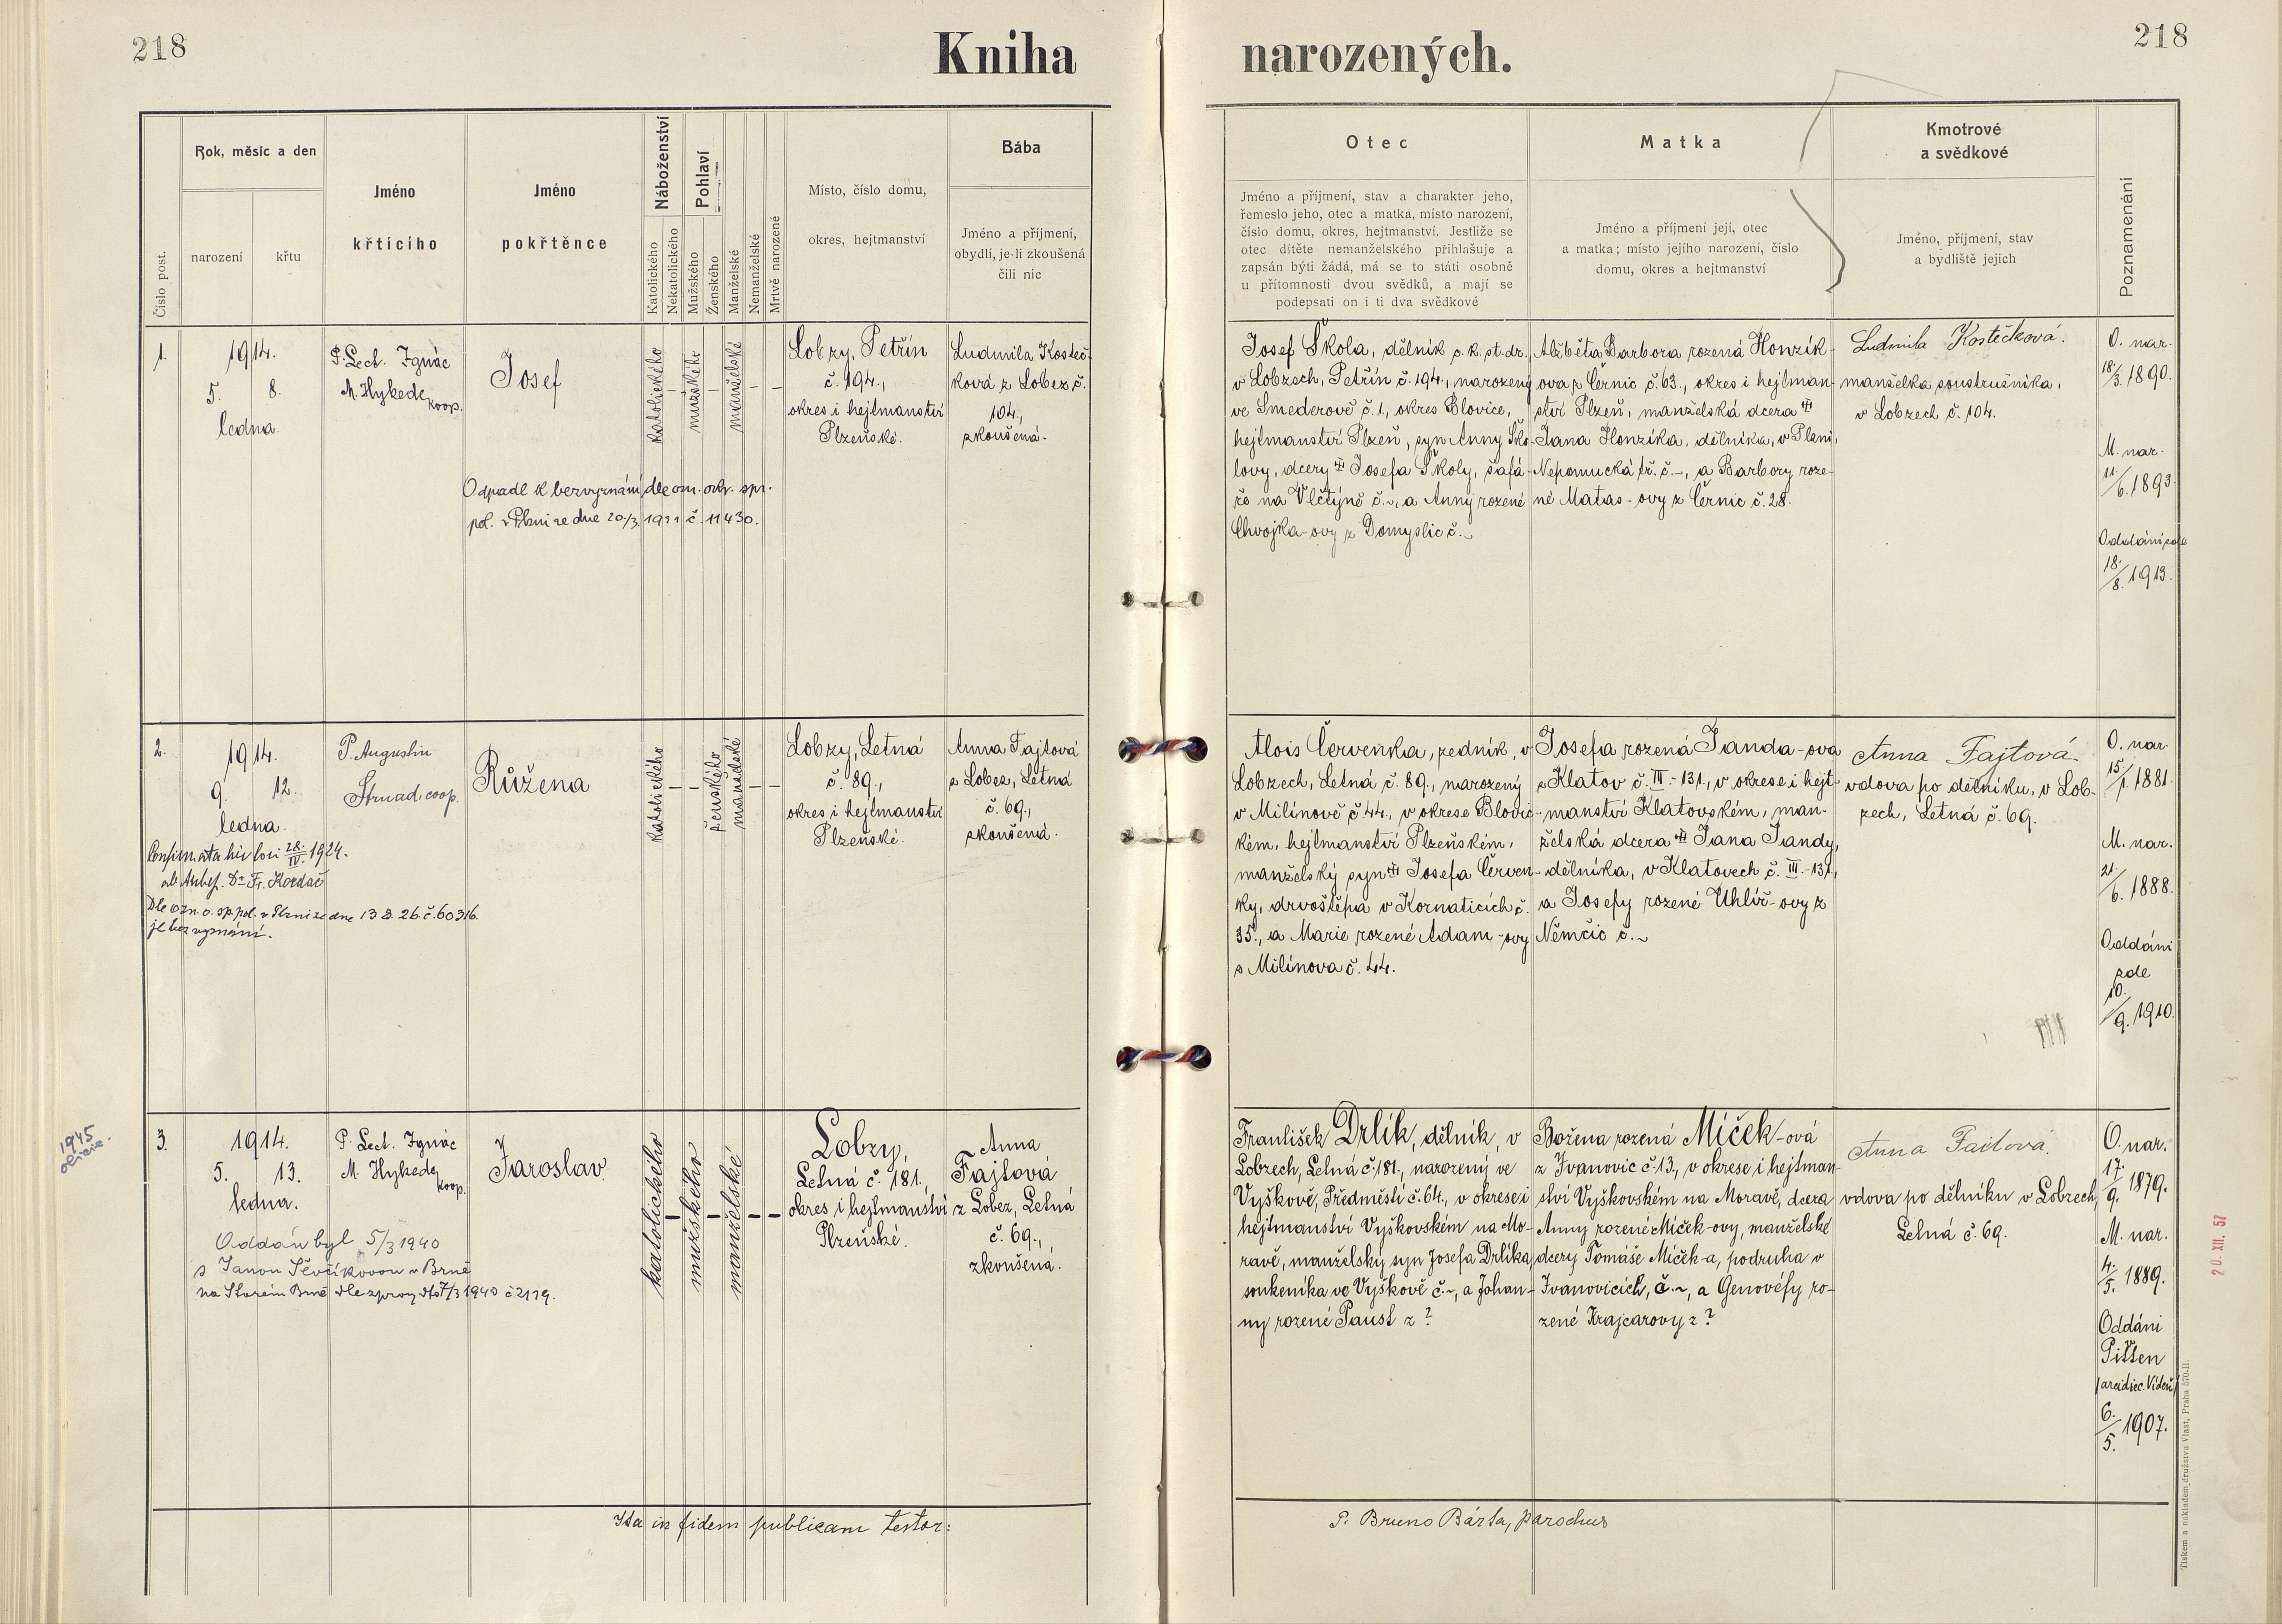 218
Kniha narozených.
218
Číslo post.
Rok, měsíc a den
narození
křtu
Jméno
křtícího
Jméno
pokřtěnce
Náboženství
Katolického
Nekatolického
Pohlaví
Mužského
Ženského
Manželské
Nemanželské
Mrtvě narozené
Místo, číslo domu,
okres, hejtmanství
Bába
Jméno a příjmení,
obydlí, je-li zkoušená
čili nic
Otec
Jméno a příjmení, stav a charakter jeho,
řemeslo jeho, otec a matka, místo narození,
číslo domu, okres, hejtmanství. Jestliže se
otec dítěte nemanželského přihlašuje a
zapsán býti žádá, má se to státi osobně
u přítomnosti dvou svědků, a mají se
podepsati on i ti dva svědkové
Matka
Jméno a příjmení její, otec
a matka; místo jejího narození, číslo
domu, okres a hejtmanství
Kmotrové
a svědkové
Jméno, příjmení, stav
a bydliště jejich
Poznamenání
1.
1914.
5. 8.
ledna.
P. Lect. Ignác
M. Hykede
koop.
Josef
katolického
mužského
manželské
Lobzy, Petřín
č. 194.,
okres i hejtmanství
Plzeňské.
Ludmila Kosteč-
ková z Lobez č.
104.,
zkoušená.
Odpadl k bezvyznání dle ozn. okr. spr.
pol. v Plzni ze dne 20/3 1921 č. 11430.
Josef Škola, dělník c. k. st. dr.,
v Lobzech, Petřín č. 194., narozený
ve Smederově č. 1., okres Blovice,
hejtmanství Plzeň, syn Anny Ško-
lovy, dcery Josefa Školy, šafá-
řo na Vlčtýně č. ~, a Anny rozené
Chvojka-ovy z Domyslic č. ~
Alžběta Barbora rozená Honzík-
ova z Černic č. 63., okres i hejtman-
ství Plzeň, manželská dcera
Jana Honzíka, dělníka, v Plzni,
Nepomucká tř. č. ~, a Barbory roze-
né Matas-ovy z Černic č. 28.
Ludmila Kostečková.
manželka soustružníka,
v Lobzech č. 104.
O. nar.
18/3. 1890.
M. nar.
11/6. 1893.
Oddáni zde
18./8. 1913.
2.
1914.
9. 12.
ledna.
P. Augustin
Strnad coop.
Růžena
katolického
ženského
manželské
Lobzy, Letná
č. 89.,
okres i hejtmanství
Plzeňské.
Anna Fajtová
z Lobez, Letná
č. 69.,
zkoušená.
Confirmata hic loci 28./IV. 1924.
ab Archep. Dr. Fr. Kordač
Dle ozn. o. sp. pol. v Plzni ze dne 13.8.26 č. 60316.
je bez vyznání.
Alois Červenka, zedník, v
Lobzech, Letná č. 89., narozený
v Milínově č. 44., v okrese Blovic-
kém, hejtmanství Plzeňském,
manželský syn Josefa Červen-
ky, drvoštěpa v Kornaticích č.
35., a Marie rozené Adam-ovy
z Milínova č. 44.
Josefa rozená Janda-ova
z Klatov č. III.-131., v okrese i hejt-
manství Klatovském, man-
želská dcera Jana Jandy,
dělníka, v Klatovech č. III.-131,
a Josefy rozené Uhlíř-ovy z
Němčic č. ~
Anna Fajtová.
vdova po dělníku, v Lob-
zech, Letná č. 69.
O. nar.
15/1. 1881.
M. nar.
21./6. 1888.
Oddáni
zde
10./9. 1910.
1945
3.
1914.
5. 13.
ledna.
P. Lect. Ignác
M. Hykede
koop.
Jaroslav.
katolického
mužského
manželské
Lobzy,
Letná č. 181.,
okres i hejtmanství
Plzeňské.
Anna
Fajtová
z Lobez, Letná
č. 69.,
zkoušená.
Oddán byl 5/3 1940
s Janou Ševčíkovou v Brně
na Starém Brně dle zprávy 7/3 1940 č 2119.
František Drlík, dělník, v
Lobzech, Letná č. 181., narozený ve
Vyškově, Předměstí č. 64., v okrese i
hejtmanství Vyškovském na Mo-
ravě, manželský syn Josefa Drlíka,
soukeníka ve Vyškově č. ~, a Johan-
ny rozené Paust z ?
Božena rozená Míček-ová
z Ivanovic č. 13., v okrese i hejtman-
ství Vyškovském na Moravě, dcera
Anny rozené Míček-ovy, manželské
dcery Tomáše Míček-a, podruha v
Ivanovicích, č. ~, a Genověfy ro-
zené Krajcarovy z ?
Anna Fajtová.
vdova po dělníku v Lobzech,
Letná č. 69.
O. nar.
17./9. 1879.
M. nar.
4./5. 1889.
Oddáni
Pitten
/arcidiec. Vídeň/
6./5. 1907.
20. XII. 57
Ita in fidem publicam testor:
P. Bruno Bárta, parochus
Tiskem a nákladem družstva Vlast, Praha 570-II.